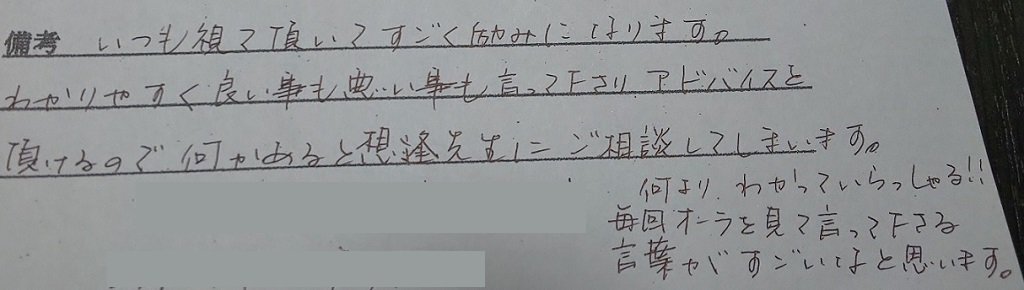 備考 いつも視て頂いてすごく励みになります。
わかりやすく良い事も悪い事も言って下さりアドバイスを
頂けるので何かあると想蓮先生にご相談してしまいます。
何より、わかっていらっしゃる!!
毎回オーラを見て言って下さる
言葉がすごいなと思います。